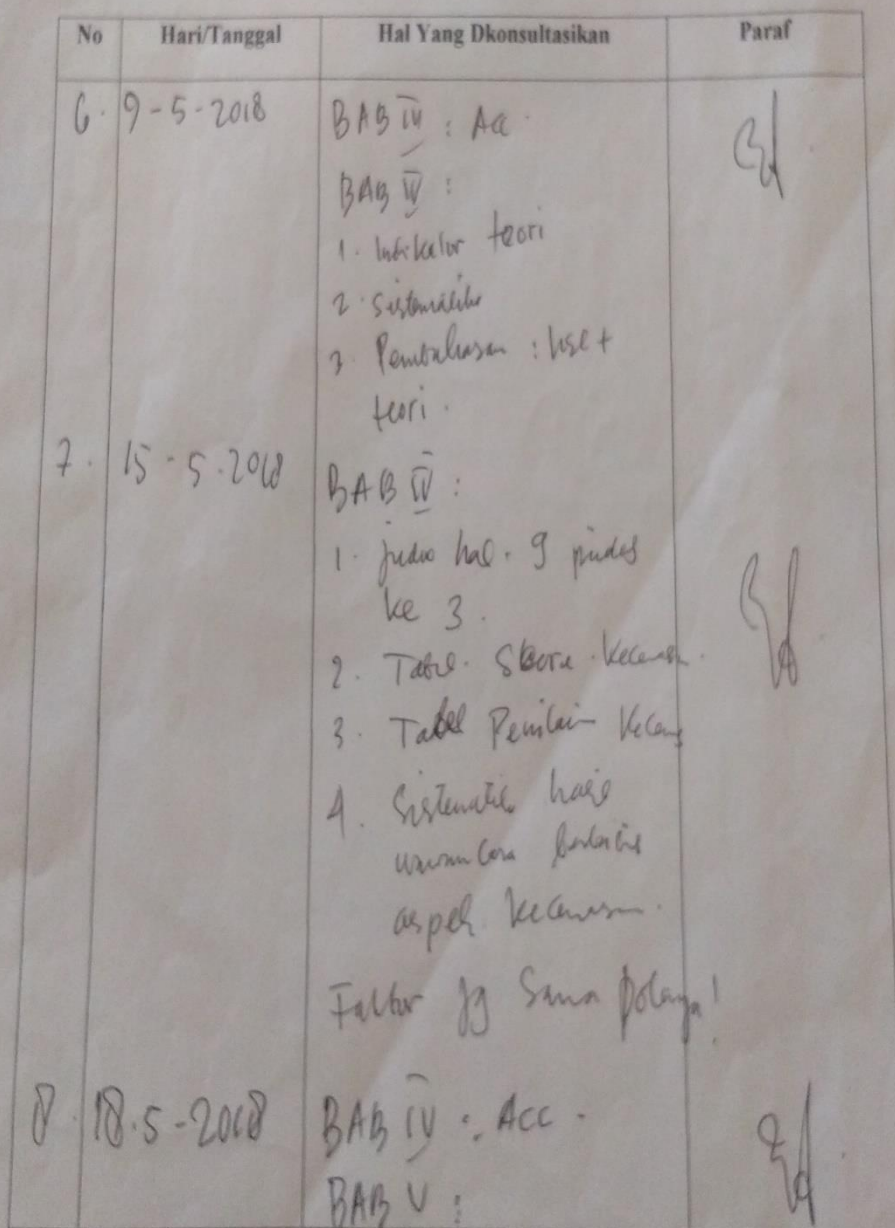 No Hari/Tanggal Hal Yang Dkonsultasikan Paraf
6. 9-5-2018 BAB : Acc.
BAB IV :
1. Indikator teori
2. Sistematika
3. Pembahasan : hsl +
teori.
7. 15-5-2018 BAB IV :
1. judul hal. 9 pindah
ke 3.
2. Tabel. Skore. Kecemasan.
3. Tabel Penilain Kecems
4. Sistematik hasil
wawancara
aspek kecemasan.
Faktor jg sama polanya!
8. 18-5-2018 BAB IV : Acc.
BAB V :